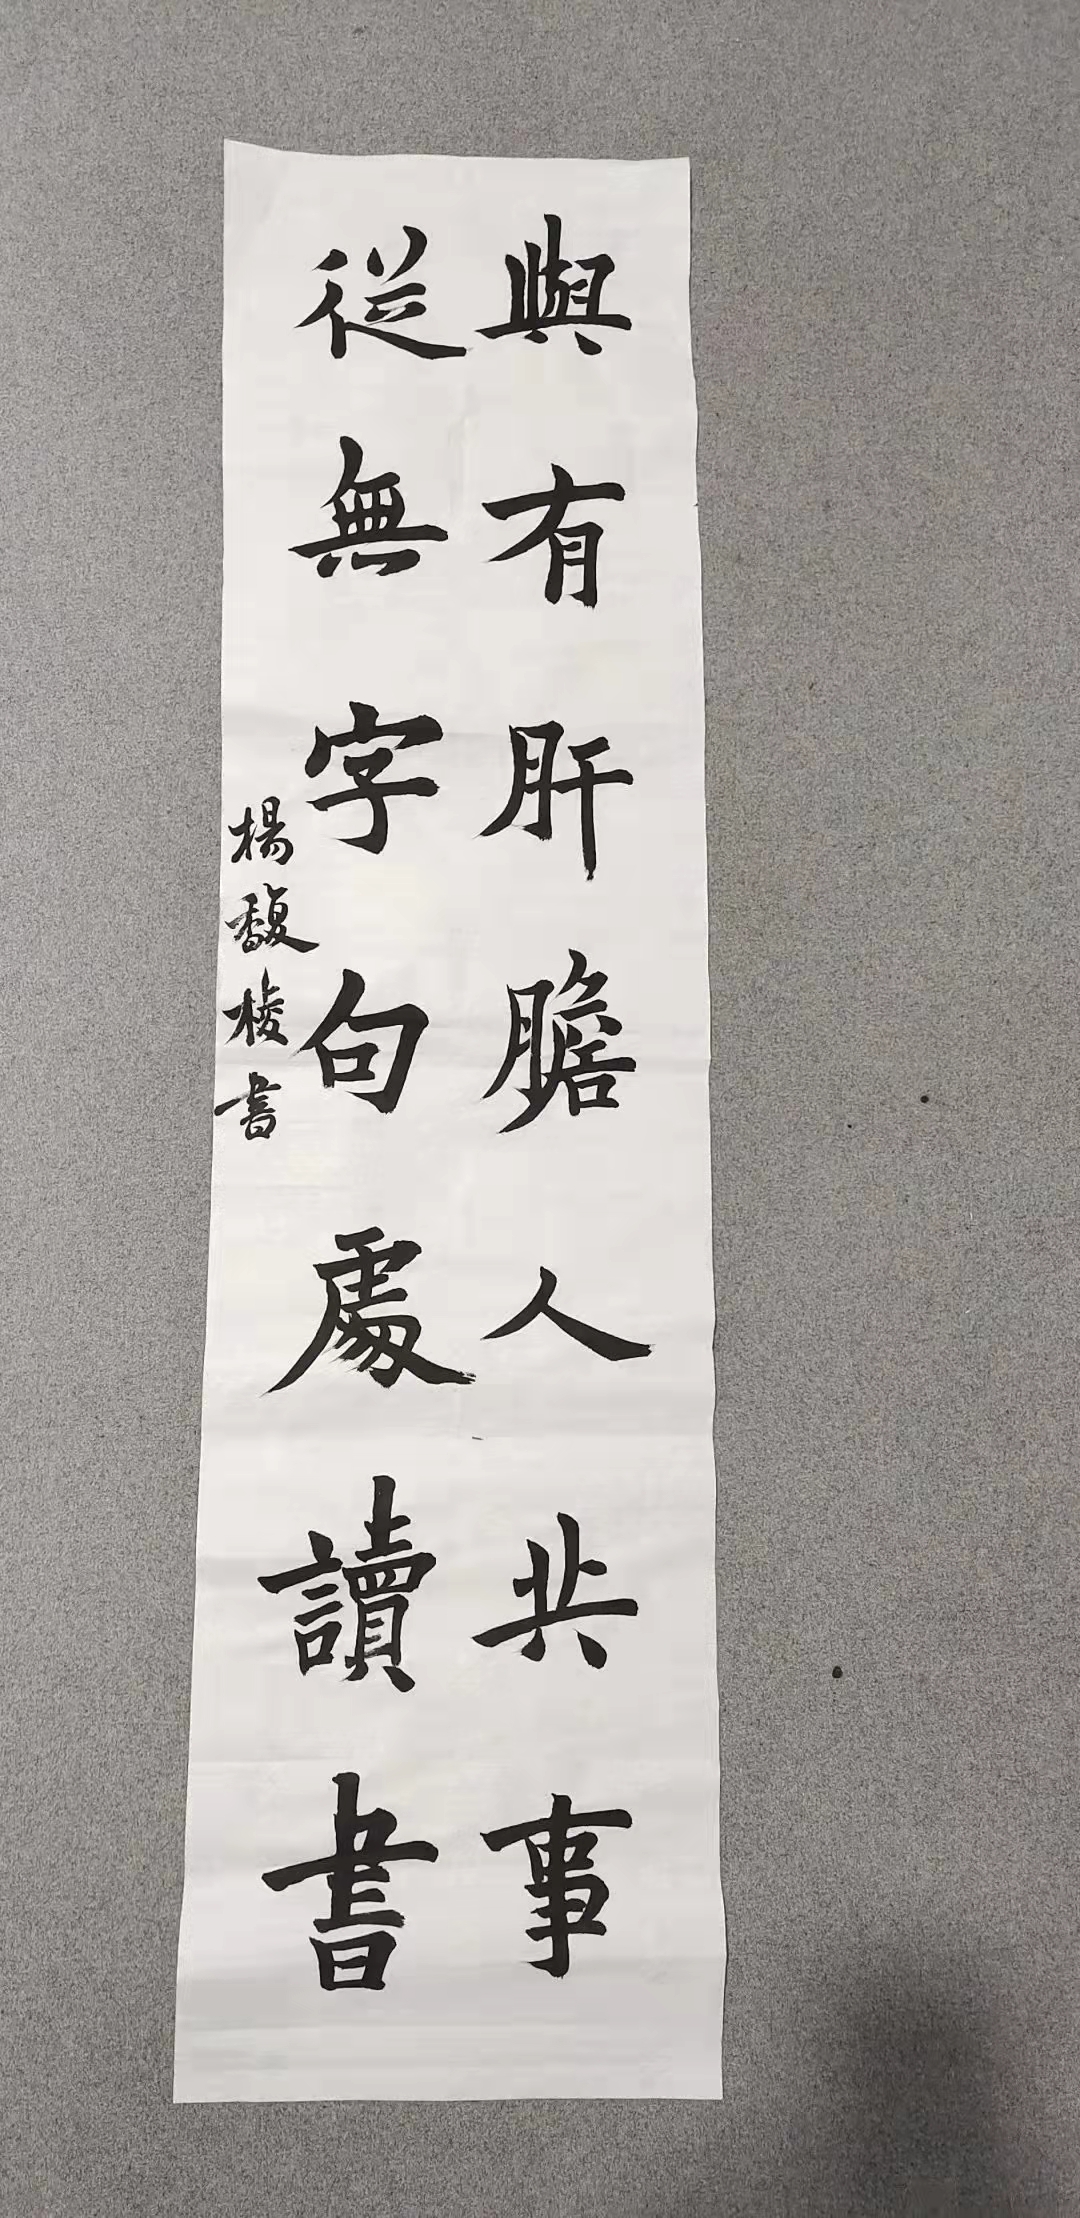 與有肝膽人共事
從無字句處讀書
楊馥棱書